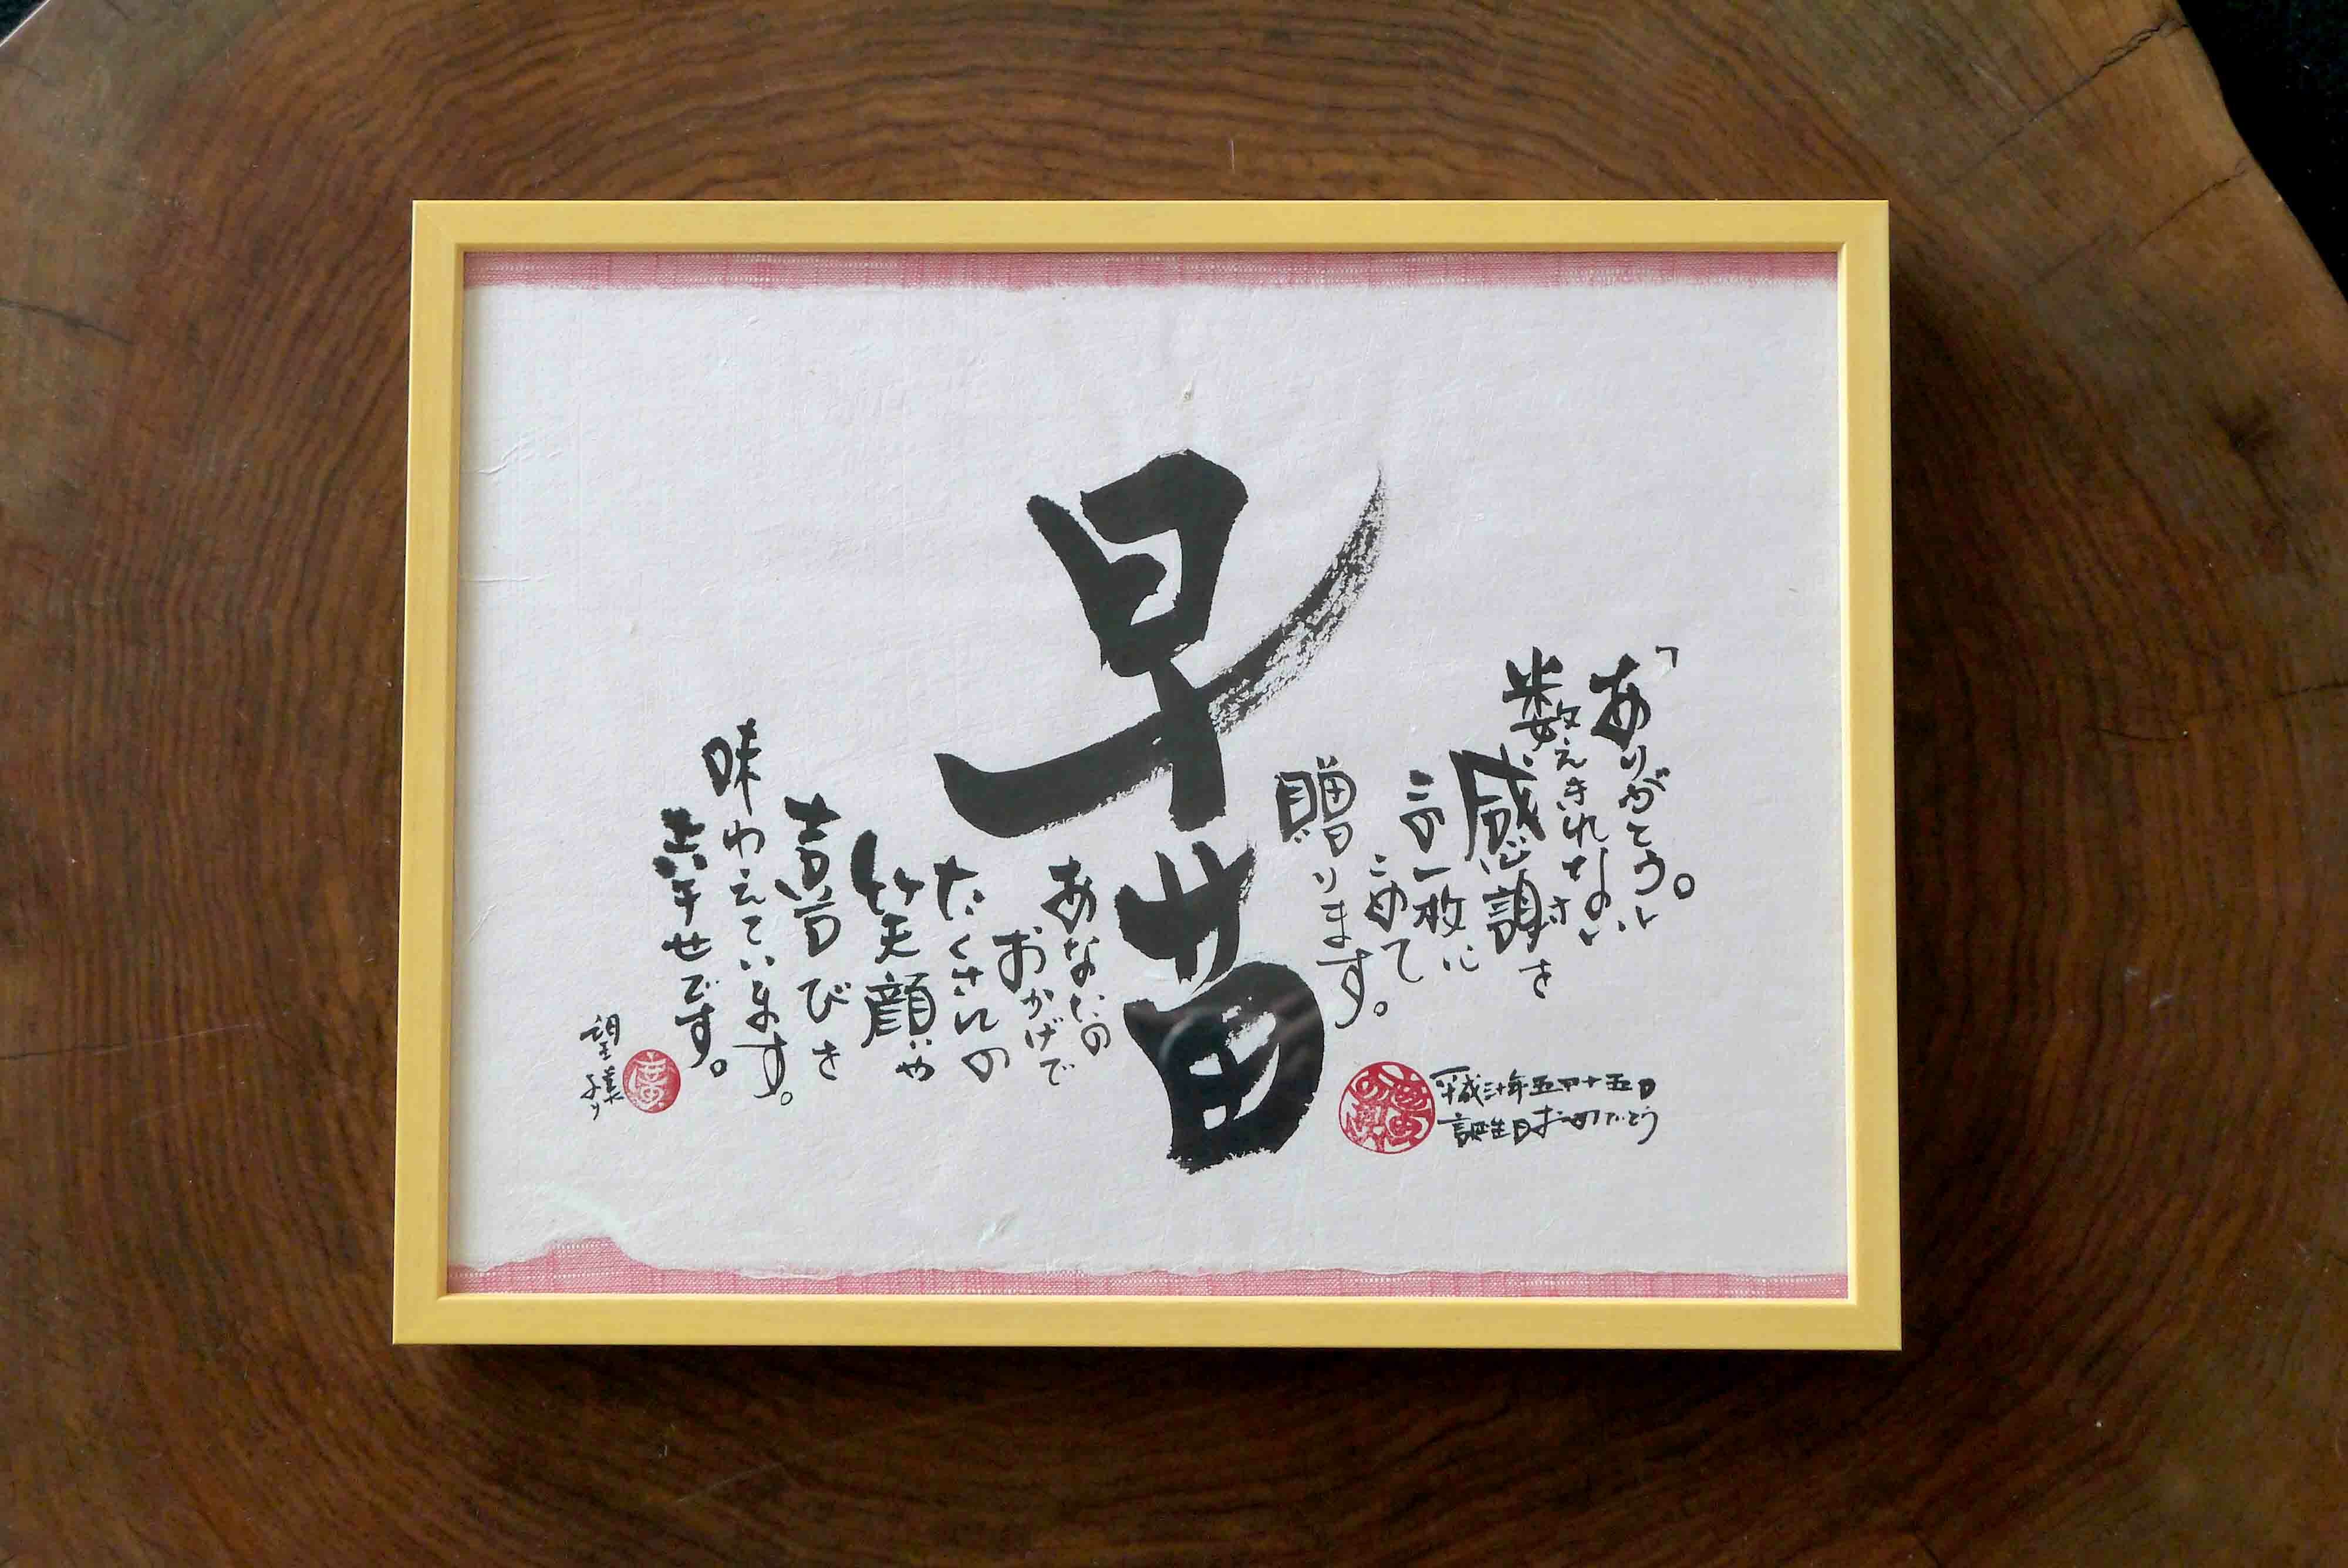 「ありがとう。」
数えきれない
感謝を
この一枚に
こめて
贈ります。
平成三十年五月十五日
誕生日おめでとう
早苗
あなたの
おかげで
たくさんの
笑顔や
喜びを
味わえています。
幸せです。
より